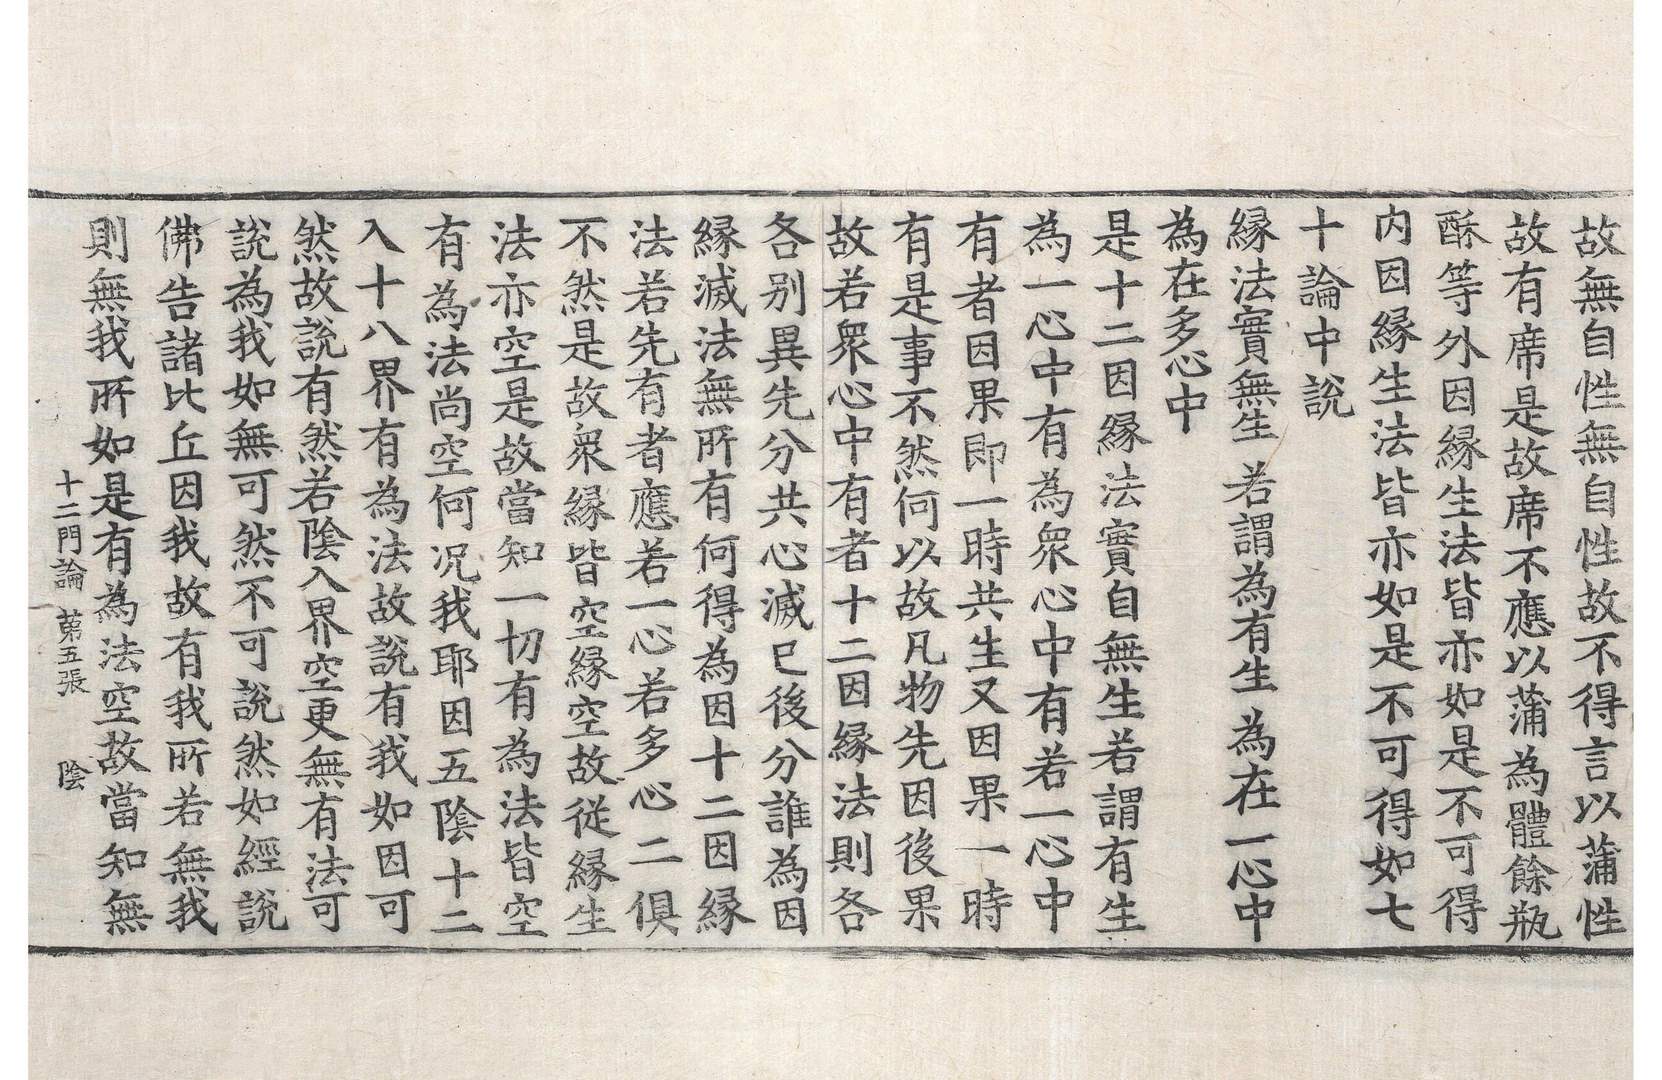 故無自性無自性故不得言以蒲性
故有席是故席不應以蒲為體餘瓶
酥等外因緣生法皆亦如是不可得
内因緣生法皆亦如是不可得如七
十論中說
緣法實無生 若謂為有生 為在一心中
為在多心中
是十二因緣法實自無生若謂有生
為一心中有為衆心中有若一心中
有者因果即一時共生又因果一時
有是事不然何以故凡物先因後果
故若衆心中有者十二因緣法則各
各別異先分共心滅已後分誰為因
緣滅法無所有何得為因十二因緣
法若先有者應若一心若多心二俱
不然是故衆緣皆空緣空故從緣生
法亦空是故當知一切有為法皆空
有為法尚空何况我耶因五陰十二
入十八界有為法故說有我如因可
然故說有然若陰入界空更無有法可
說為我如無可然不可說然如經說
佛告諸比丘因我故有我所若無我
則無我所如是有為法空故當知無
十二門論 第五張 陰